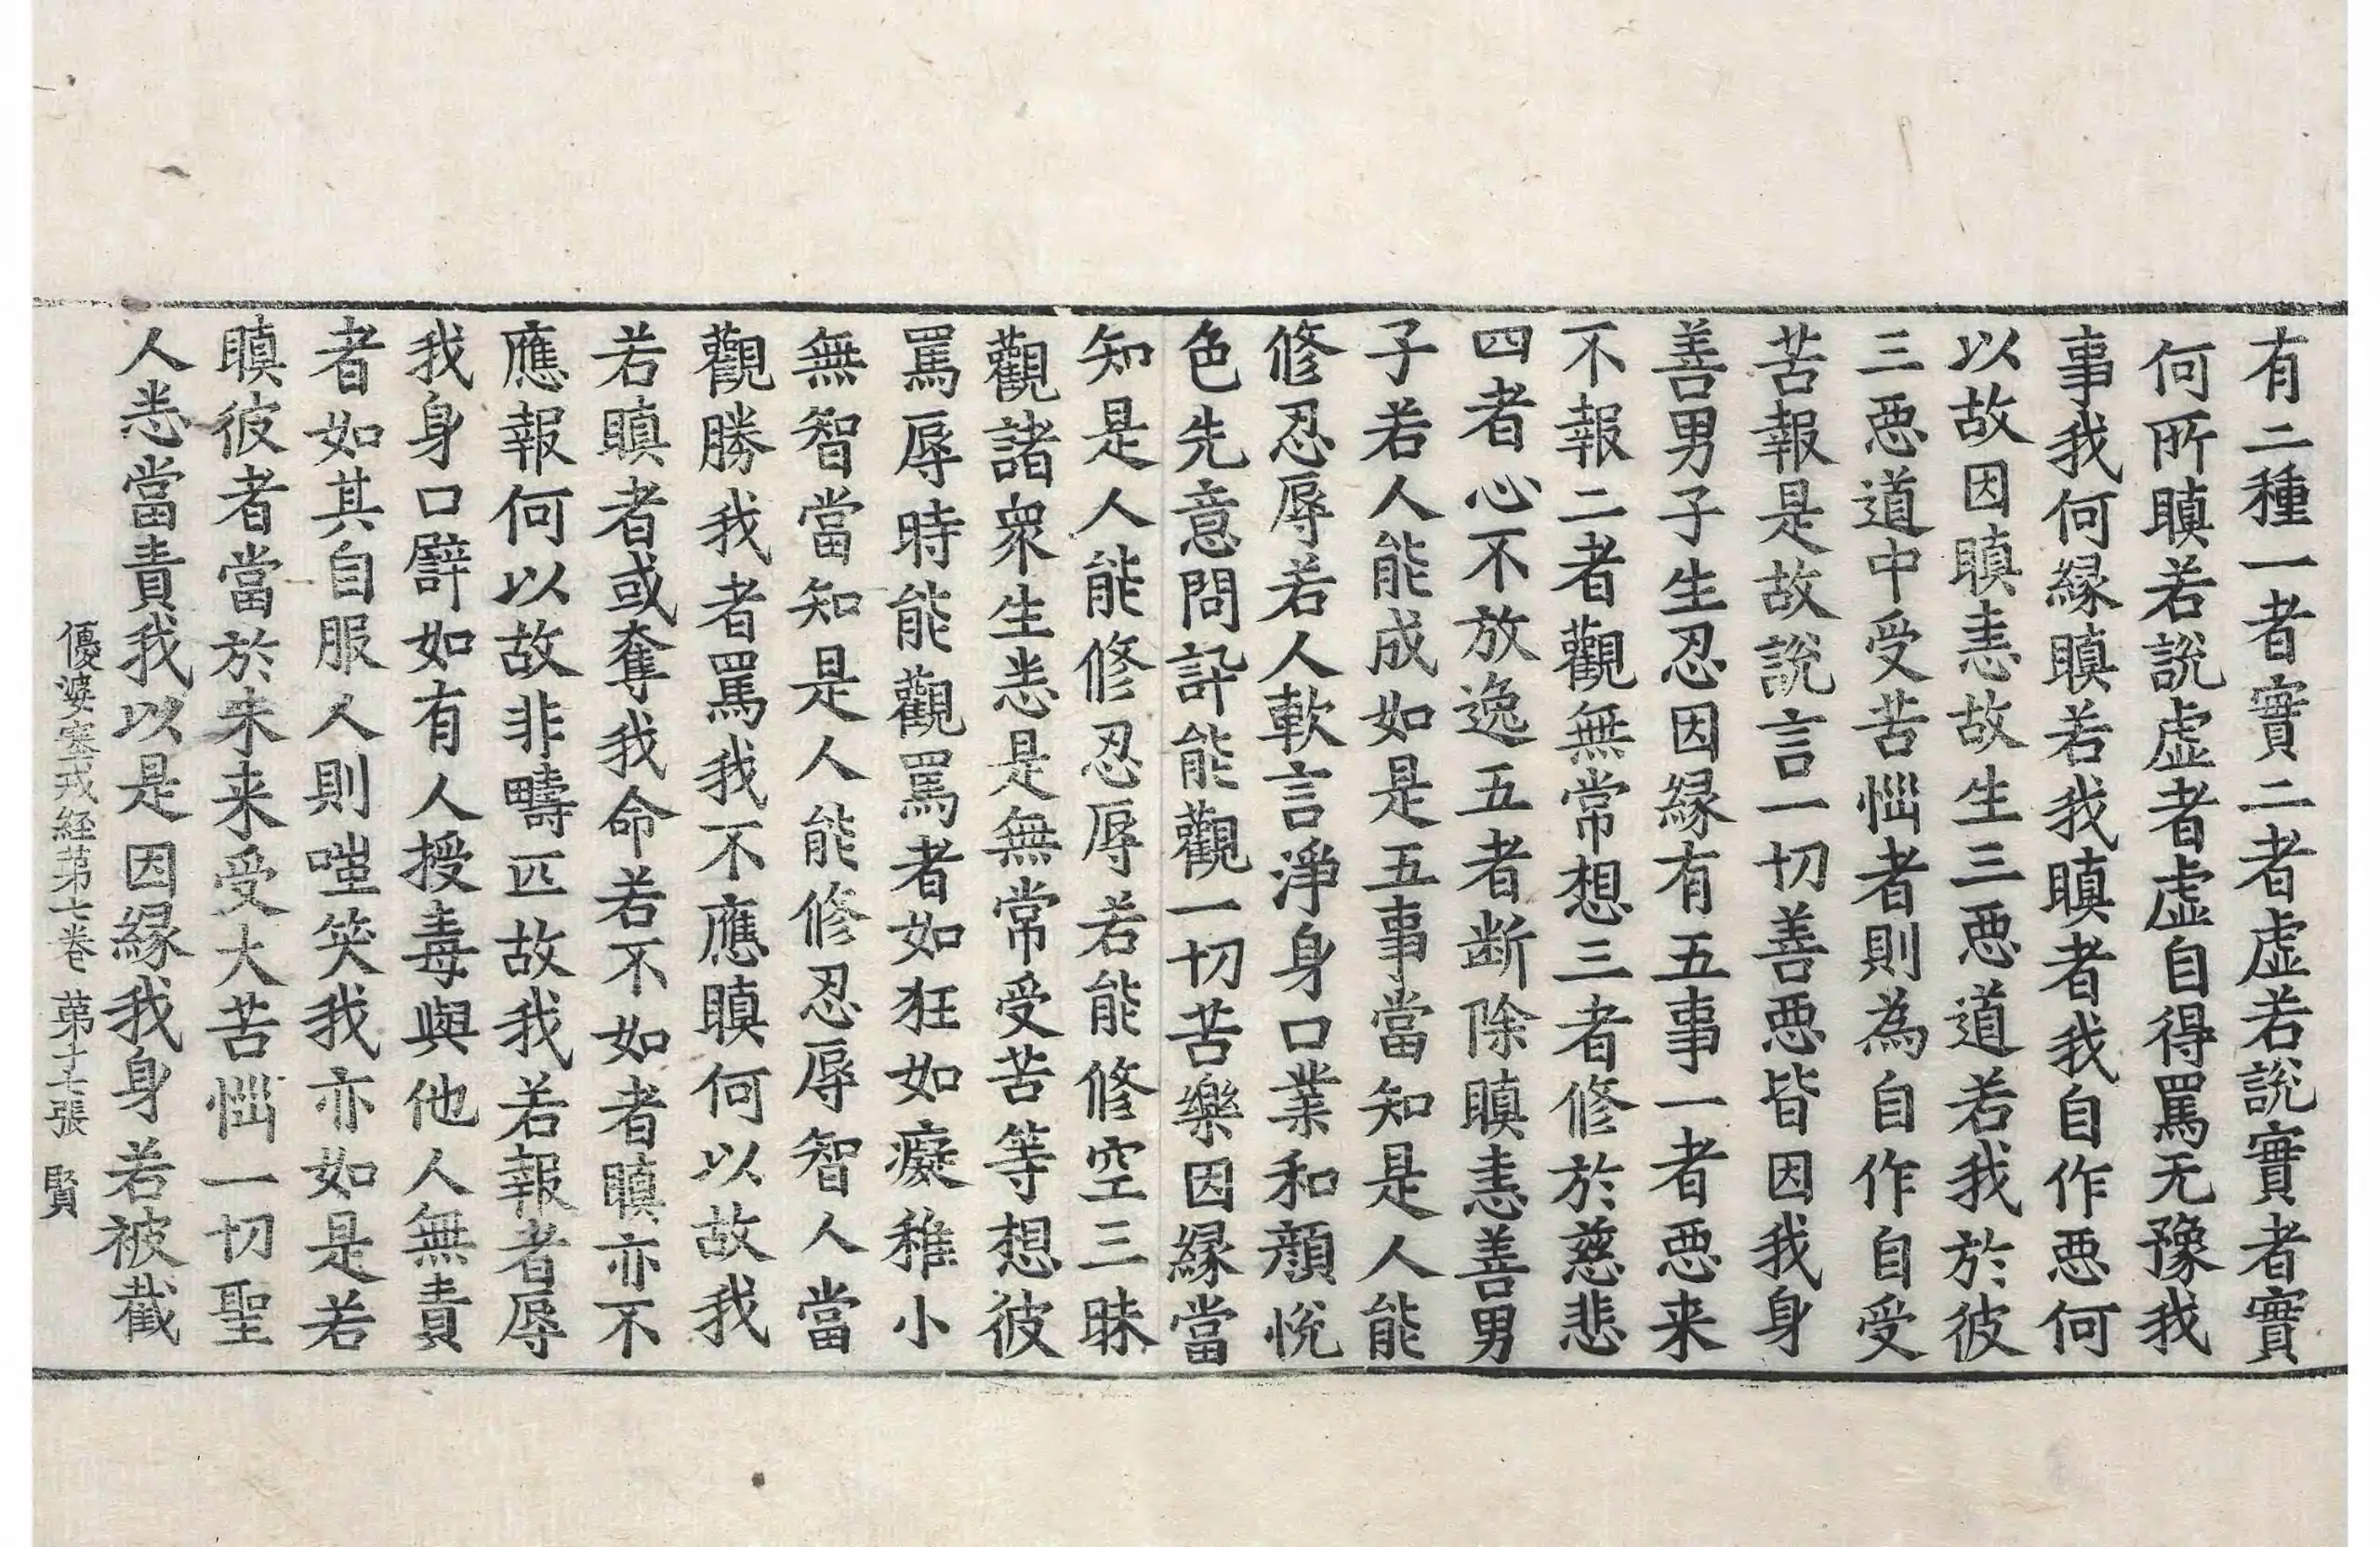 有二種一者實二者虛若說實者實
何所瞋若說虛者虛自得罵无豫我
事我何緣瞋若我瞋者我自作惡何
以故因瞋恚故生三惡道若我於彼
三惡道中受苦惱者則為自作自受
苦報是故說言一切善惡皆因我身
善男子生忍因緣有五事一者惡来
不報二者觀無常想三者修於慈悲
四者心不放逸五者断除瞋恚善男
子若人能成如是五事當知是人能
修忍辱若人軟言淨身口業和顏悅
色先意問訊能觀一切苦樂因緣當
知是人能修忍辱若能修空三昧
觀諸衆生恚是無常受苦等想彼
罵辱時能觀罵者如狂如癡稚小
無智當知是人能修忍辱智人當
觀勝我者罵我不應瞋何以故我
若瞋者或奪我命若不如者瞋亦不
應報何以故非疇匹故我若報者辱
我身口譬如有人授毒與他人無責
者如其自服人則嗤笑我亦如是若
瞋彼者當於未来受大苦惱一切聖
人恚當責我以是因緣我身若被截
優婆塞戒經第七卷 第十七張 賢